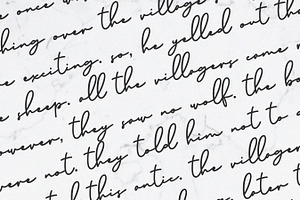 e once w
hing over the village
e exciting. so, he yelled out th
e sheep. all the villagers come r
owever, they saw no wolf. the bo
vere not. they told him not to a
d this antic. the villager
s. later t